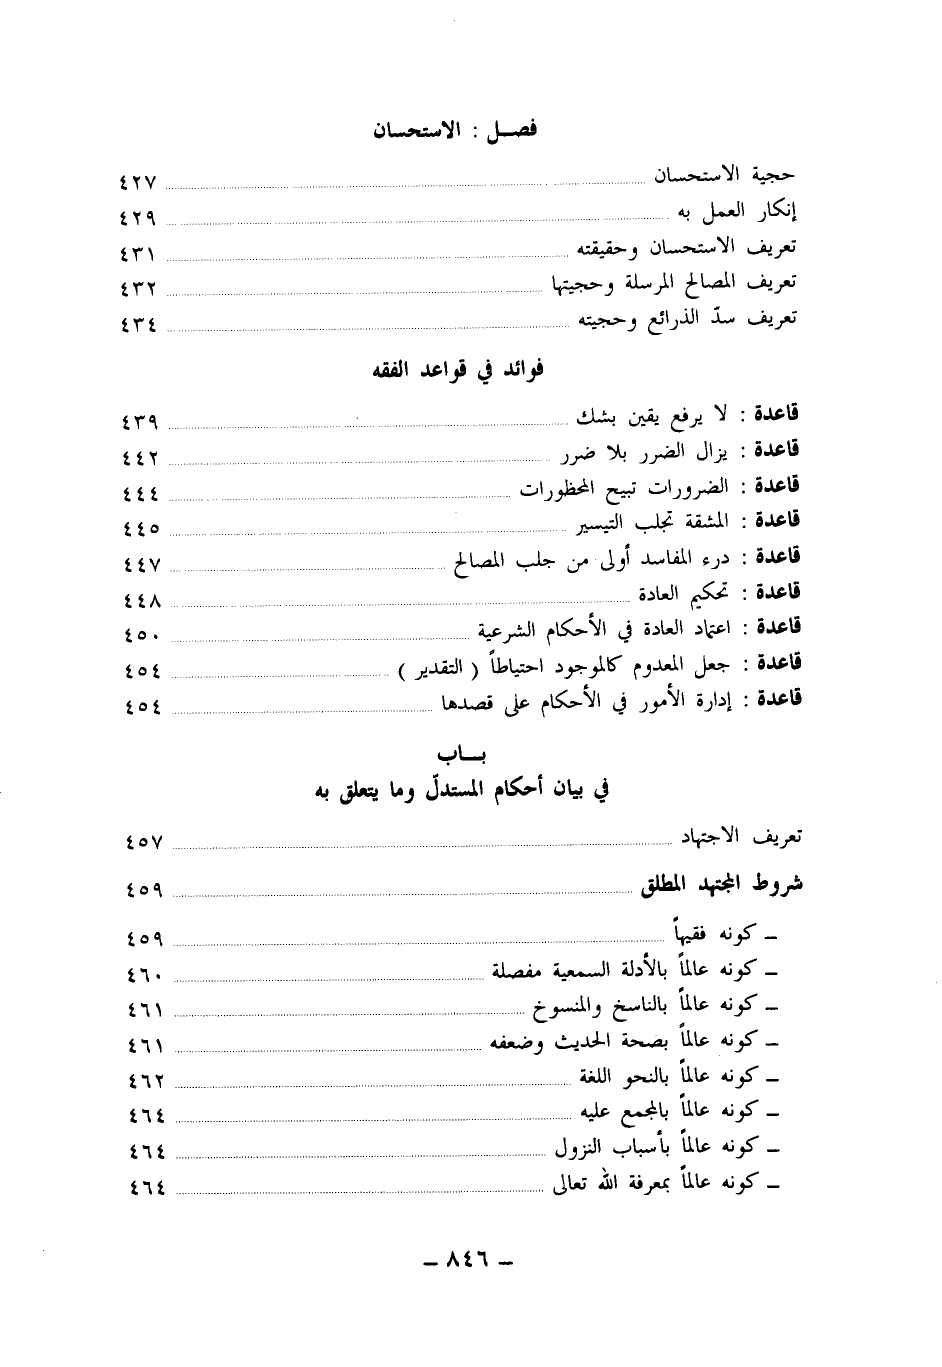 فصـل : الاستحسان
حجية الاستحسان ٤٢٧
إنكار العمل به ٤٢٩
تعريف الاستحسان وحقيقته ٤٣١
تعريف المصالح المرسلة وحجيتها ٤٣٢
تعريف سدّ الذرائع وحجيته ٤٣٤
فوائد في قواعد الفقه
قاعدة : لا يرفع يقين بشك ٤٣٩
قاعدة : يزال الضرر بلا ضرر ٤٤٢
قاعدة : الضرورات تبيح المحظورات ٤٤٤
قاعدة : المشقة تجلب التيسير ٤٤٥
قاعدة : درء المفاسد أولى من جلب المصالح ٤٤٧
قاعدة : تحكيم العادة ٤٤٨
قاعدة : اعتماد العادة في الأحكام الشرعية ٤٥٠
قاعدة : جعل المعدوم كالموجود احتياطاً ( التقدير ) ٤٥٤
قاعدة : إدارة الأمور في الأحكام على قصدها ٤٥٤
بـاب
في بيان أحكام المستدلّ وما يتعلق به
تعريف الاجتهاد ٤٥٧
شروط المجتهد المطلق ٤٥٩
ـ كونه فقيهاً ٤٥٩
ـ كونه عالماً بالأدلة السمعية مفصلة ٤٦٠
ـ كونه عالماً بالناسخ والمنسوخ ٤٦١
ـ كونه عالماً بصحة الحديث وضعفه ٤٦١
ـ كونه عالماً بالنحو اللغة ٤٦٢
ـ كونه عالماً بالمجمع عليه ٤٦٤
ـ كونه عالماً بأسباب النزول ٤٦٤
ـ كونه عالماً بمعرفة الله تعالى ٤٦٤
ـ ٨٤٦ ـ